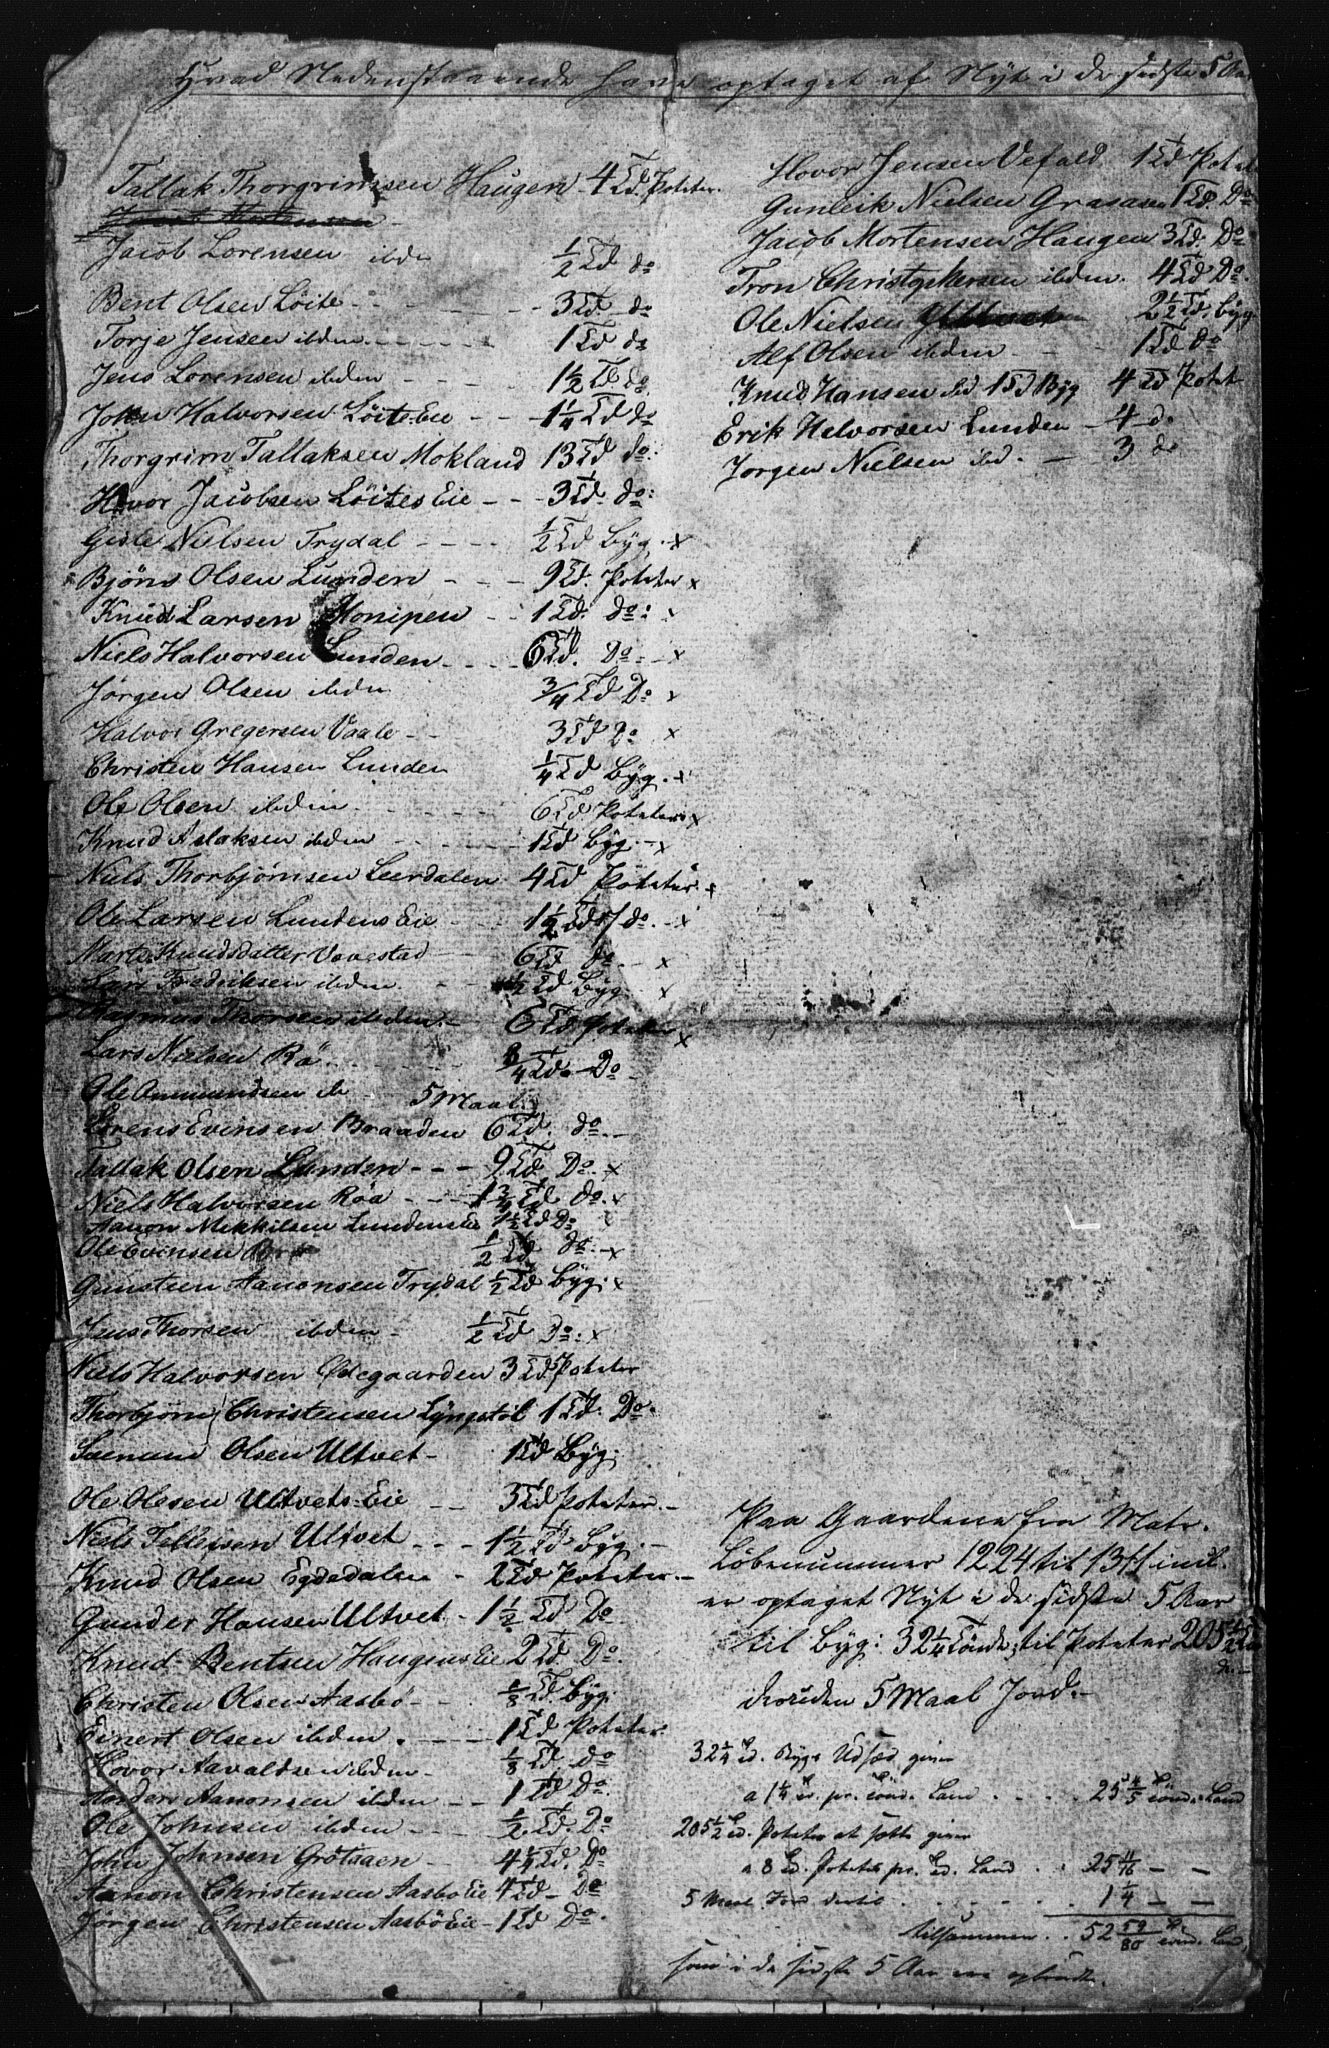 Hvad Nedenstaaende have optaget af Nyt i de sidste 5 Aar
Tallak Thorgrimsen Haugen - 4 Td. Poteter.
Jacob Mortensen
Jacob Lorensen ibdn ½ Td do
Bent Olsen Löite - - - 3 Td do
Torje Jensen ibdm - - - 1 Td do
Jens Lorensen ibdm - - - 1½ Td do
John Halvorsen Löites Eie - - 1¼ Td do
Thorgrim Tallaksen Mokland 13 Td do:
Hovor Jacobsen Löites Eie - - 3 Td. do:
Gisle Nielsen Trydal - - - - ½ Td Byg. - x
Bjöns Olsen Lunden - - - 9 Td. Poteter x
Knud Larsen Monipen - - 1 Td. do: x
Niels Halvorsen Lunden - - - 6 Td. Do - x
Jörgen Olsen ibdm ¾ Td Do x
Halvor Gregersen Vaale - - 3 Td Do x
Christen Hansen Lunden ¼ Td Byg. x
Ole Olsen ibdm - - - 6 Td Poteter x
Knud Aslaksen ibdm - - - 1 Td Byg - x
Niels Thorbjörnsen Leerdalen 4 Td Poteter. x
Ole Larsen Lundens Eie - 1½ Td do. - x
Marte Knudsdatter Vovestad - 6 Td do - x
Lars Fredriksen ibdm - - ½ Td Byg - x
Rasmus Thorsen ibdm. - 6 Td Poteter x
Lars Nielsen Rö - - - ¾ Td. - Do -
Ole Ommundsen do - 5 Maal x
Lorens Evensen Braaden 6 Td. do. -
Tallak Olsen Lunden - - - 9 Td. Do. x
Niels Halvorsen Röa - - 1¾ Td do. x
Aanon Mikkilsen Lundens Eie 1½ Td Do
Ole Evensen ½ Td do. - x
Gunsteen Aanonsen Trydal ½ Td Byg: x
Jens Thorsen ibdm - ½ Td Do: x
Niels Halvorsen Ödegaarden 3 Td Poteter
Thorbjörn Christensen Lyngstöl 1 Td. Do.
Samund Olsen Ultvet - 1 Td Byg:
Ole Olesen Ultvets Eie - - 3 Td Poteter. -
Niels Tellefsen Ultvet - - - 1½ Td Byg. -
Knud Olsen Egdedalen - 2 Td Poteter. -
Gunder Hansen Ultvet - 1½ Td Do
Knud Bentsen Haugens Eie 2 Td. Do.
Christen Olsen Aasbö - - ⅛ Td. Byg.
Einert Olsen ibdm. - - - 1 Td Poteter.
Hovor Aavaldsen ibdm - ⅛ Td do
Anders Aanonsen ibdm - - 1 Td Do.
Ole Johnsen ibdm - - - - ½ Td. Do
John Johnsen Grötsaen - 4¼ Td. Do
Aanon Christensen Aasbö Eie 4 Td - Do
Jörgen Christensen Aasbö Eie - 1 Td Do.
Hovor Jensen Vefald 1 Td Poteter
Gunleik Nielsen Grasaasen 1 Td. Do
Jacob Mortensen Haugen 3 Td. Do
Tron Christophersen ibdm. 4 Td Do.
Ole Nielsen 2½ Td. Byg
Alf Olsen ibdm - - - 1 Td do
Knud Hansen ibd 1 Td Byg 4 Td Potet
Erik Halvorsen Lunden - 4 - do
Jörgen Nielsen ibd. - - 3 do
Paa Gaardene fra Matr.
Löbenummer 1224 til incl.
er optaget Nyt i de sidste 5 Aar
til Byg: 32¼ Tönde; til Poteter 205½ Td
desuden 5 Maal Jord. -
32¼ Td. Bygs Udsæd giver
a 1¼ Td. pr. Tönd. Land . . . . 25 4/5 Tönd. Land
205½ Td. Poteter at sætte giver
a 8 Td. Poteter pr. Td. Land . . 25 11/16 - -
5 Maal Jord dertil . . . . . 1¼ - -
tilsammen . . 52 59/80 Tönd. Land,
som i de sidste 5 Aar ere opbrudte.